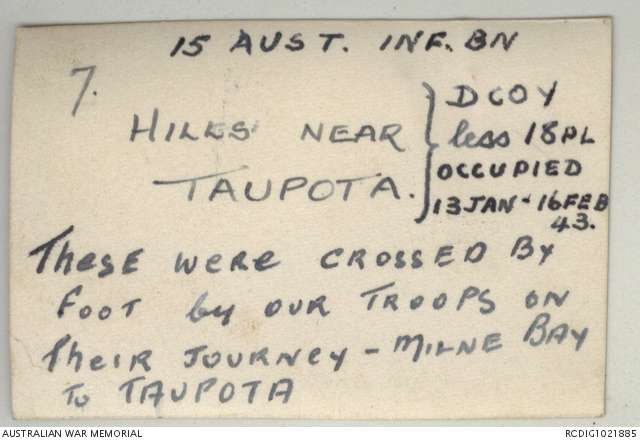 15 AUST. INF. BN
7.
HILLS NEAR
TAUPOTA.
D COY
less 18 PL
OCCUPIED
13 JAN - 16 FEB
43.
These were CROSSED By
FOOT by OUR TROOPS ON
Their JOURNEY - MILNE BAY
To TAUPOTA
AUSTRALIAN WAR MEMORIAL
RCDIG1021885